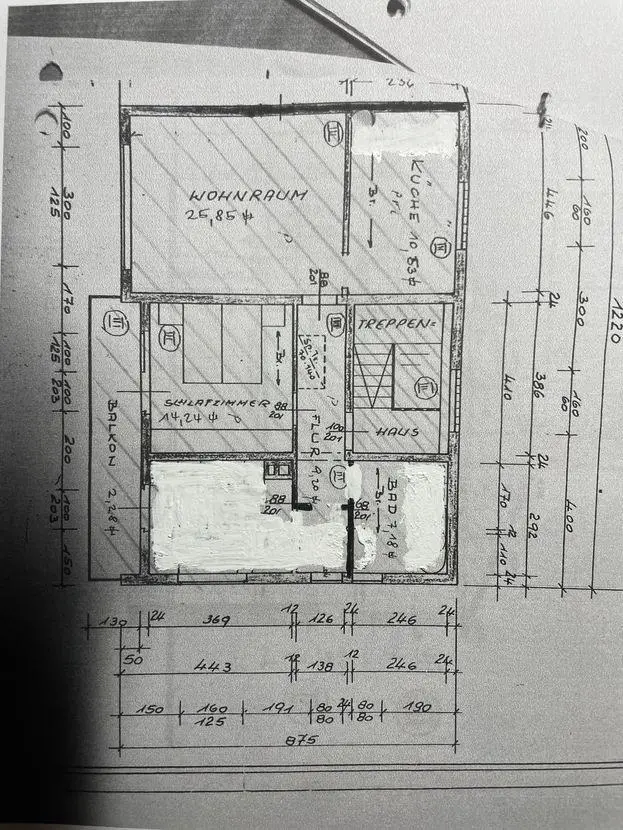 100
300
125
170
100
125
100
203
200
100
203
150
WOHNRAUM
25,85
KÜCHE 10,53
Br.
IV
88
201
SCHLAFZIMMER
14,24
Br.
88
201
III
BALKON 2,28
FLUR 9,20
100
201
TREPPEN=
HAUS
88
201
BAD 7,18
Br.
68
201
24
446
24
386
24
292
24
410
170
12
110
200
160
60
300
160
60
400
1220
130
24
369
12
126
24
246
24
50
443
12
138
12
246
24
150
160
125
191
80
80
24
80
80
190
875